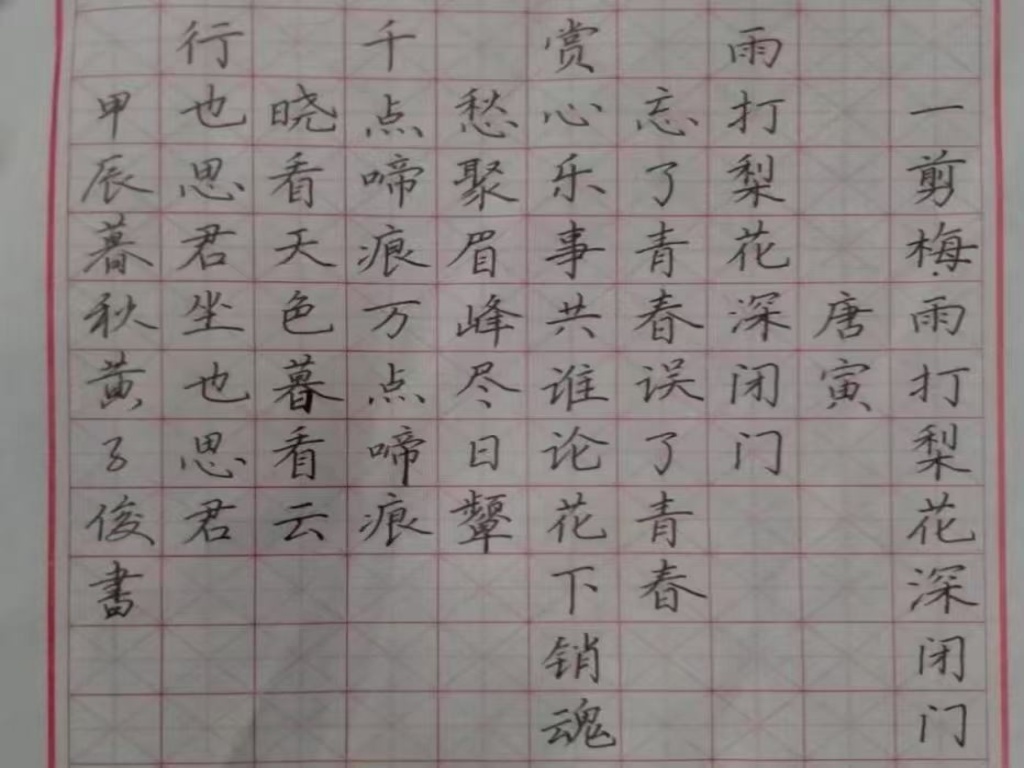 一剪梅雨打梨花深闭门
唐寅
雨打梨花深闭门
忘了青春误了青春
赏心乐事共谁论花下销魂
愁聚眉峰尽日颦
千点啼痕万点啼痕
晓看天色暮看云
行也思君坐也思君
甲辰暮秋黄子俊書